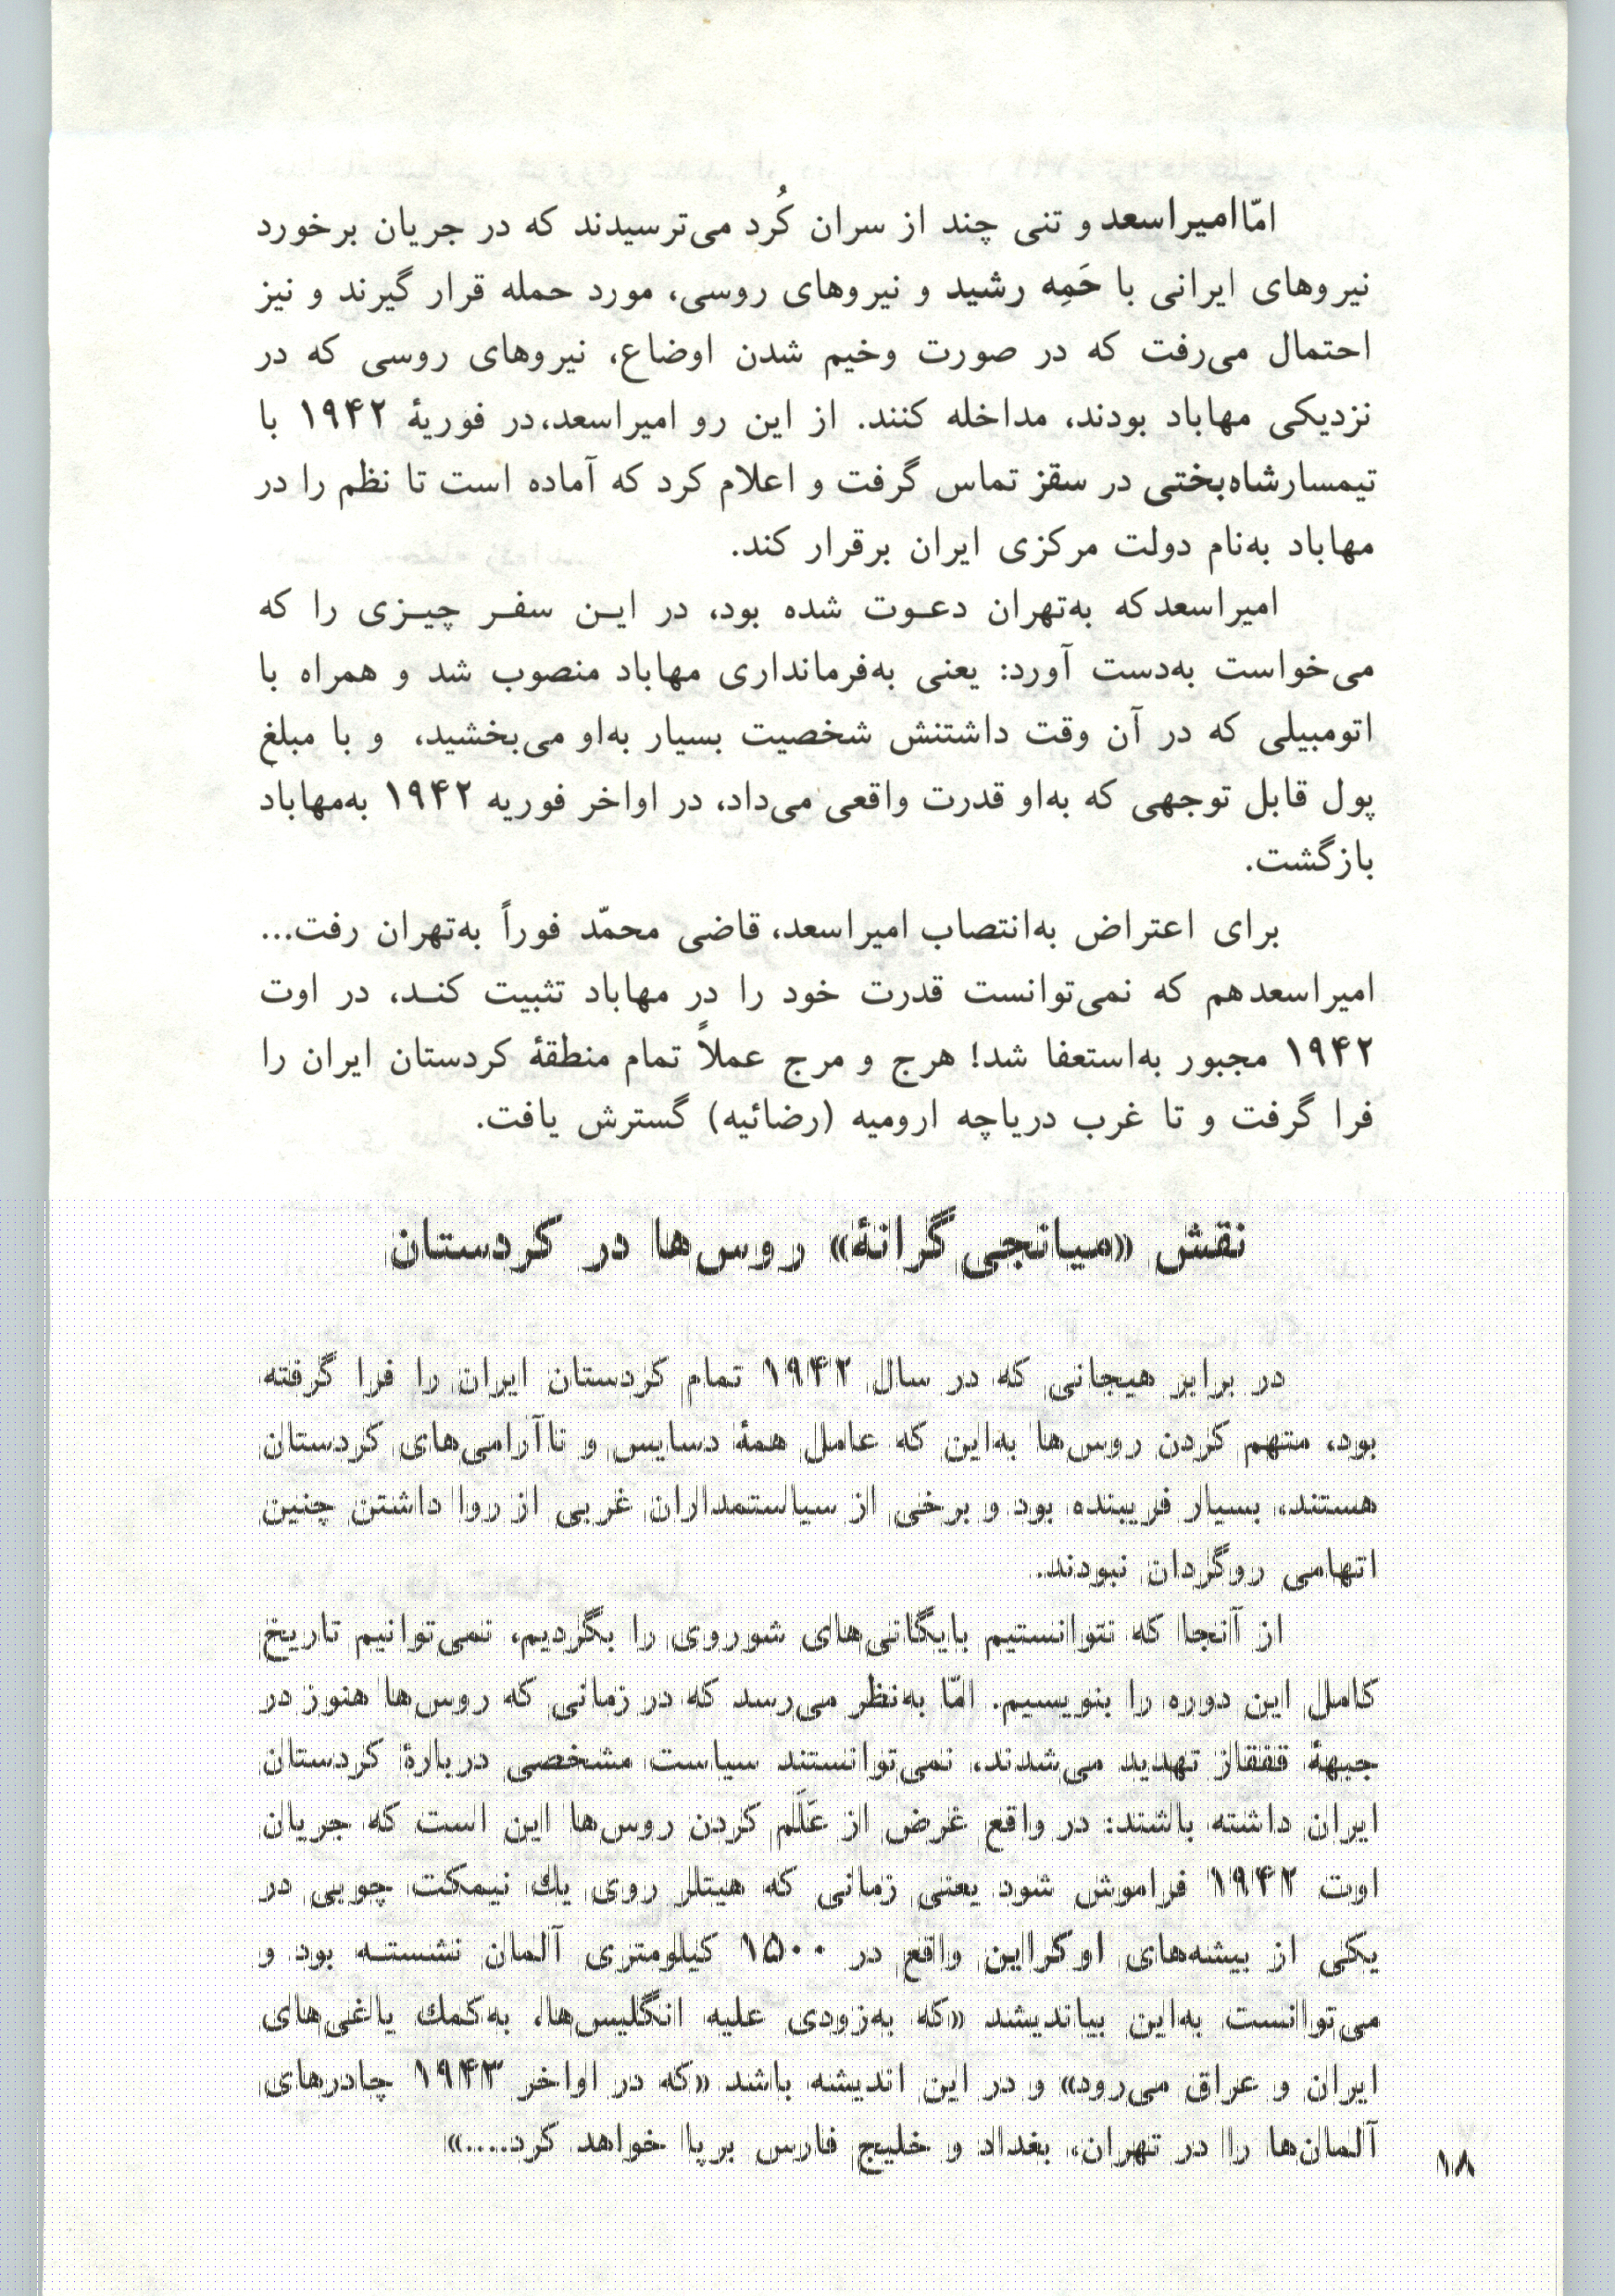 امّا امیراسعد و تنی چند از سران کُرد می‌ترسیدند که در جریان برخورد
نیروهای ایرانی با حَمِه رشید و نیروهای روسی، مورد حمله قرار گیرند و نیز
احتمال می‌رفت که در صورت وخیم شدن اوضاع، نیروهای روسی که در
نزدیکی مهاباد بودند، مداخله کنند. از این رو امیراسعد، در فوریهٔ ۱۹۴۲ با
تیمسار شاه‌بختی در سقز تماس گرفت و اعلام کرد که آماده است تا نظم را در
مهاباد به‌نام دولت مرکزی ایران برقرار کند.
امیراسعد که به‌تهران دعـوت شده بود، در ایـن سفـر چیـزی را که
می‌خواست به‌دست آورد: یعنی به‌فرمانداری مهاباد منصوب شد و همراه با
اتومبیلی که در آن وقت داشتنش شخصیت بسیار به‌او می‌بخشید، و با مبلغ
پول قابل توجهی که به‌او قدرت واقعی می‌داد، در اواخر فوریه ۱۹۴۲ به‌مهاباد
بازگشت.
برای اعتراض به‌انتصاب امیراسعد، قاضی محمّد فوراً به‌تهران رفت...
امیراسعد هم که نمی‌توانست قدرت خود را در مهاباد تثبیت کنـد، در اوت
۱۹۴۲ مجبور به‌استعفا شد! هرج و مرج عملاً تمام منطقهٔ کردستان ایران را
فرا گرفت و تا غرب دریاچه ارومیه (رضائیه) گسترش یافت.
نقش «میانجی‌گرانهٔ» روس‌ها در کردستان
در برابر هیجانی که در سال ۱۹۴۲ تمام کردستان ایران را فرا گرفته
بود، متهم کردن روس‌ها به‌این که عامل همهٔ دسایس و ناآرامی‌های کردستان
هستند، بسیار فریبنده بود و برخی از سیاستمداران غربی از روا داشتن چنین
اتهامی روگردان نبودند.
از آنجا که نتوانستیم بایگانی‌های شوروی را بگردیم، نمی‌توانیم تاریخ
کامل این دوره را بنویسیم. امّا به‌نظر می‌رسد که در زمانی که روس‌ها هنوز در
جبههٔ قفقاز تهدید می‌شدند، نمی‌توانستند سیاست مشخصی دربارهٔ کردستان
ایران داشته باشند: در واقع غرض از عَلَم کردن روس‌ها این است که جریان
اوت ۱۹۴۲ فراموش شود یعنی زمانی که هیتلر روی یك نیمکت چوبی در
یکی از بیشه‌های اوکراین واقع در ۱۵۰۰ کیلومتری آلمان نشستـه بود و
می‌توانست به‌این بیاندیشد «که به‌زودی علیه انگلیس‌ها، به‌کمك یاغی‌های
ایران و عراق می‌رود» و در این اندیشه باشد «که در اواخر ۱۹۴۳ چادرهای
آلمان‌ها را در تهران، بغداد و خلیج فارس برپا خواهد کرد....»
۱۸